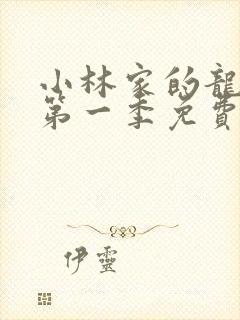 小林家的龍
第一季免費
伊靈